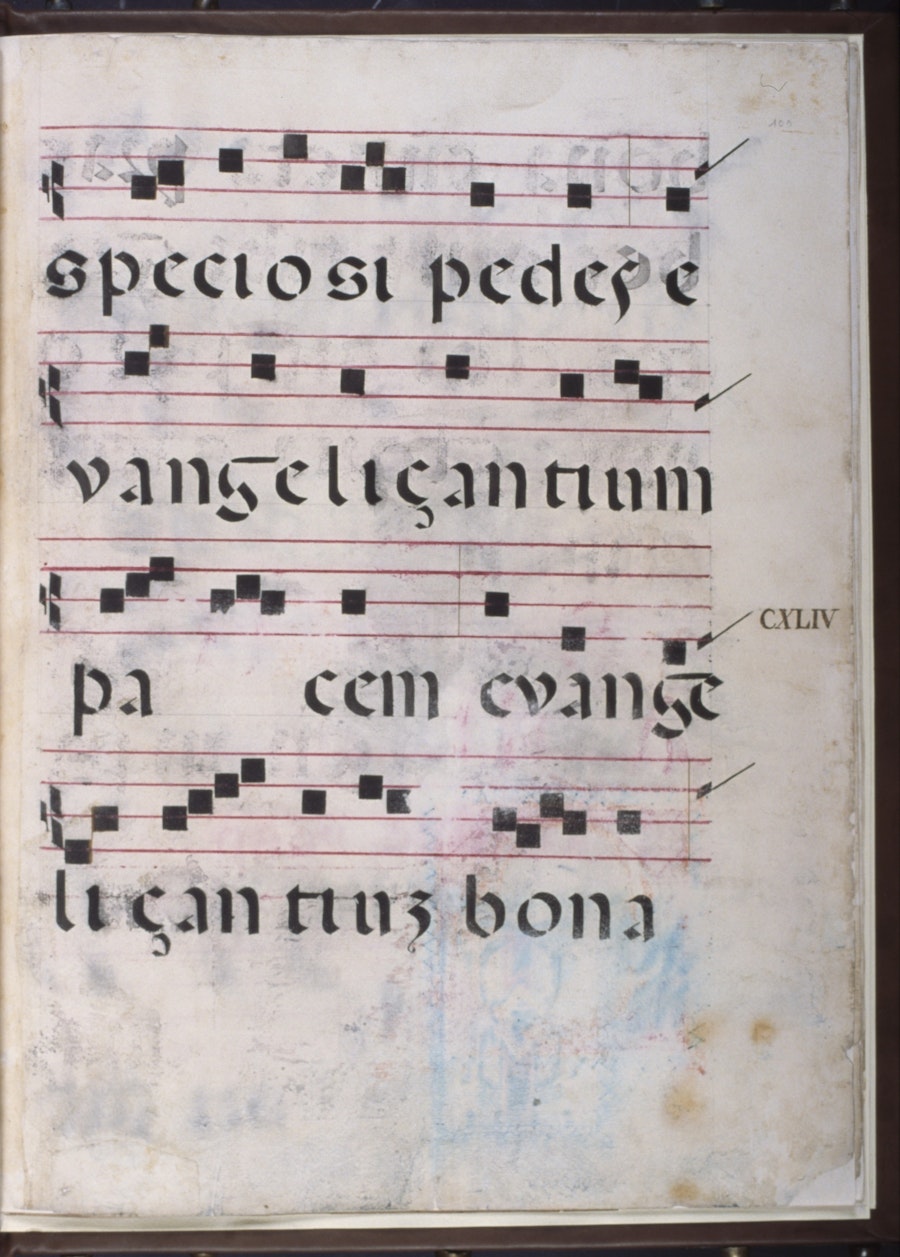 specio si pedes e
vangeliçantium
pa cem evange
CXLIV
li çan tiuz bona